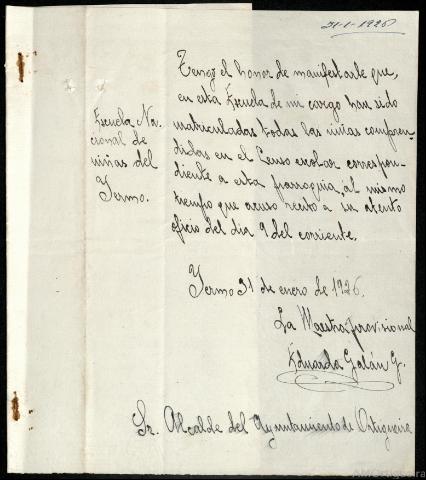 31-1-1926
Escuela Na-
cional de
niñas del
Yermo.
Tengo el honor de manifestarle que,
en esta Escuela de mi cargo han sido
matriculadas todas las niñas compren-
didas en el Censo escolar correspon-
diente a esta parroquia, al mismo
tiempo que acuso recibo a su atento
oficio del dia 9 del corriente.
Yermo 31 de enero de 1926.
La Maestra provisional
Eduarda Galán G.
Sr. Alcalde del Ayuntamiento de Ortigueira